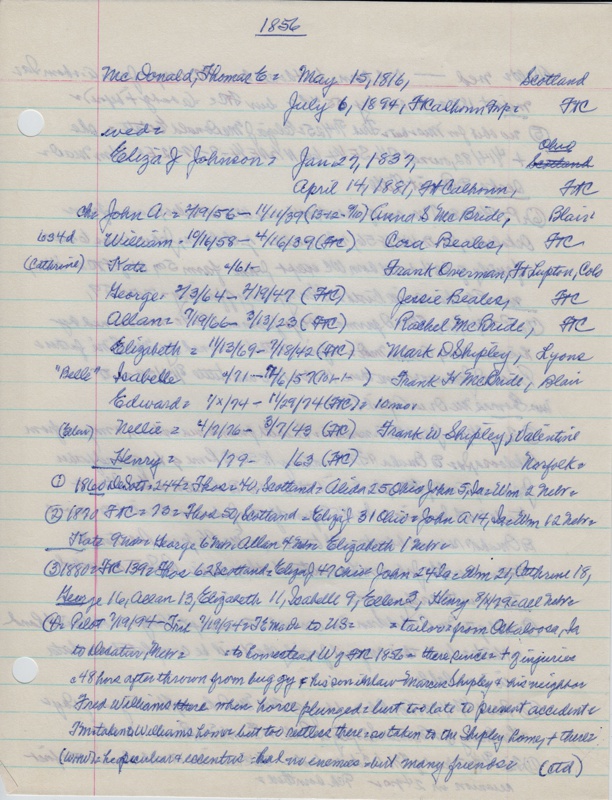 1856
McDonald, Thomas C = May 15, 1816, Scotland
July 6, 1894, Ft Calhoun Twp = FtC
wed =
Eliza J Johnson = Jan 27, 1837, Ohio Scotland
April 14, 1881, Ft Calhoun, FtC
ch = John A. = 2/19/56 - 11/11/39 Anna S McBride, Blair
William = 10/16/58 - 4/16/39 (FtC) Cora Beales, FtC
(Catherine) Kate = /61 - Frank Overman, Ft Lupton, Colo
George = 2/3/64 - 2/19/47 (FtC) Jessie Beales, FtC
Allan = 7/19/66 - 3/13/23 (FtC) Rachel McBride, FtC
Elizabeth = 11/13/69 - 7/15/42 (FtC) Mark D Shipley, Lyons
"Belle" Isabelle /71 - Frank H McBride, Blair
Edward = - 11/29/74 (FtC) = 10 mos
(Ellen) Nellie = 4/7/76 - 3/7/43 (FtC) Frank W Shipley, Valentine
Henry = /79 - /63 (FtC) Norfolk =
① 1860 DeSoto = 244 = Thos = 40, Scotland = 25 Ohio John 5, Ia = Wm 2 Nebr =
② 1870 FtC = 73 = Thos 50, Scotland = Eliz J 31 Ohio = John A 14, Ia = Wm 12 Nebr =
Kate 9 Nebr = George 6 Nebr, Allan 4 Nebr Elizabeth 1 Nebr =
③ 1880 = FtC 139 = Thos 62 Scotland = Eliza J 47 Ohio = John 24 Ia = Wm 21, Catherine 18,
George 16, Allan 13, Elizabeth 11, Isabelle 9, Ellen 3, Henry = all Nebr =
④ = Pilot 7/19/94 = = to US = = tailor = from Oskaloosa, Ia
to Decatur, Nebr = = to homestead W of FtC 1856 = there since = + of injuries
48 hors after thrown from buggy = his son in law Marcus Shipley = his neighbor
Fred Williams there when horse plunged = but too late to prevent accident =
Tm taken Williams home = but too restless there = so taken to the Shipley home, + there =
= he peculiar + eccentric = had no enemies = but many friends = (ctd)